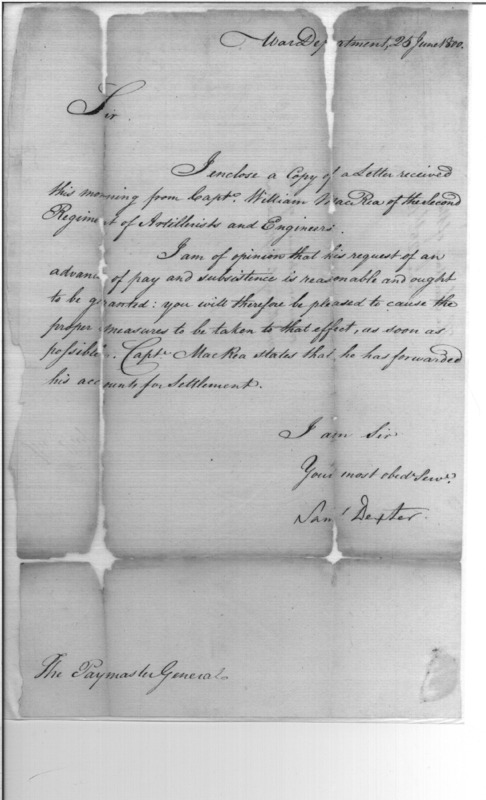 War Department, 25 June 1800.
Sir.
I enclose a Copy of a Letter received
this morning from Capt. William MacRea of the Second
Regiment of Artillerists and Engineers.
I am of opinion that his request of an
advance of pay and subsistence is reasonable and ought
to be granted: you will therefore be pleased to cause the
proper measures to be taken to that effect, as soon as
possible. Capt. MacRea states that he has forwarded
his accounts for Settlement.
I am Sir
Your most obed. Serv.
Sam.l Dexter.
The Paymaster General